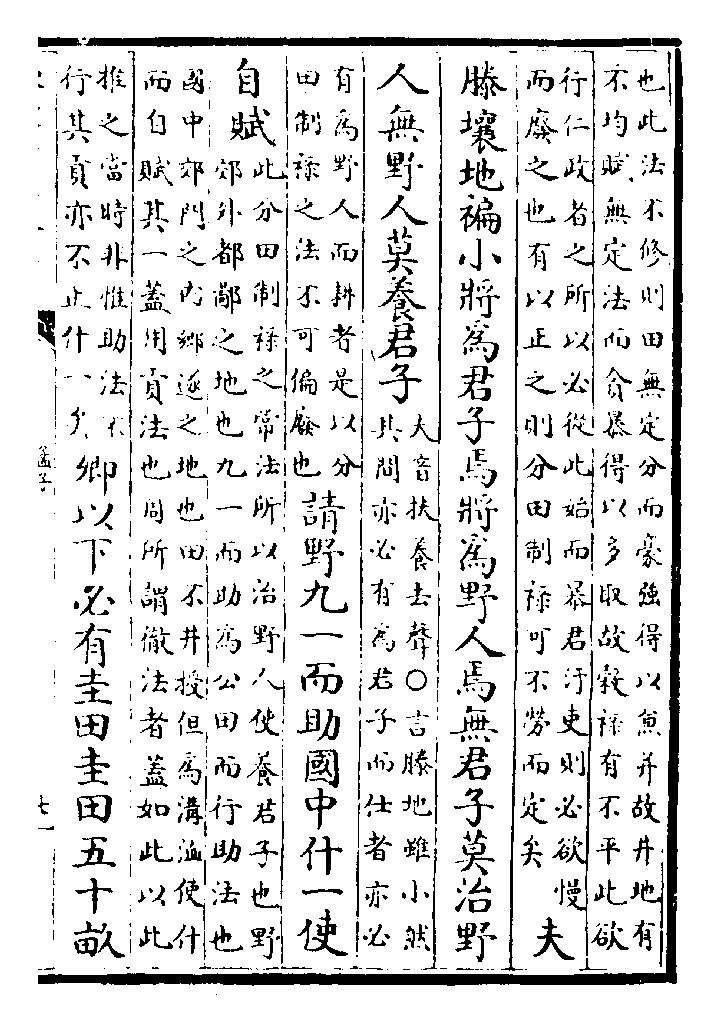 也此法不修則田無定分而豪強得以兼并故井地有
不均賦無定法而貪暴得以多取故穀祿有不平此欲
行仁政者之所以必從此始而暴君汙吏則必欲慢
而廢之也有以正之則分田制祿可不勞而定矣
夫
滕壤地褊小將為君子焉將為野人焉無君子莫治野
人無野人莫養君子
夫音扶養去聲○言滕地雖小然
其間亦必有為君子而仕者亦必
有為野人而耕者是以分
田制祿之法不可偏廢也
請野九一而助國中什一使
自賦
此分田制祿之常法所以治野人使養君子也野
郊外都鄙之地也九一而助為公田而行助法也
國中郊門之內鄉遂之地也田不井授但為溝洫使什
而自賦其一蓋用貢法也周所謂徹法者蓋如此以此
推之當時非惟助法不
行其貢亦不止什一矣
卿以下必有圭田圭田五十畝
孟子